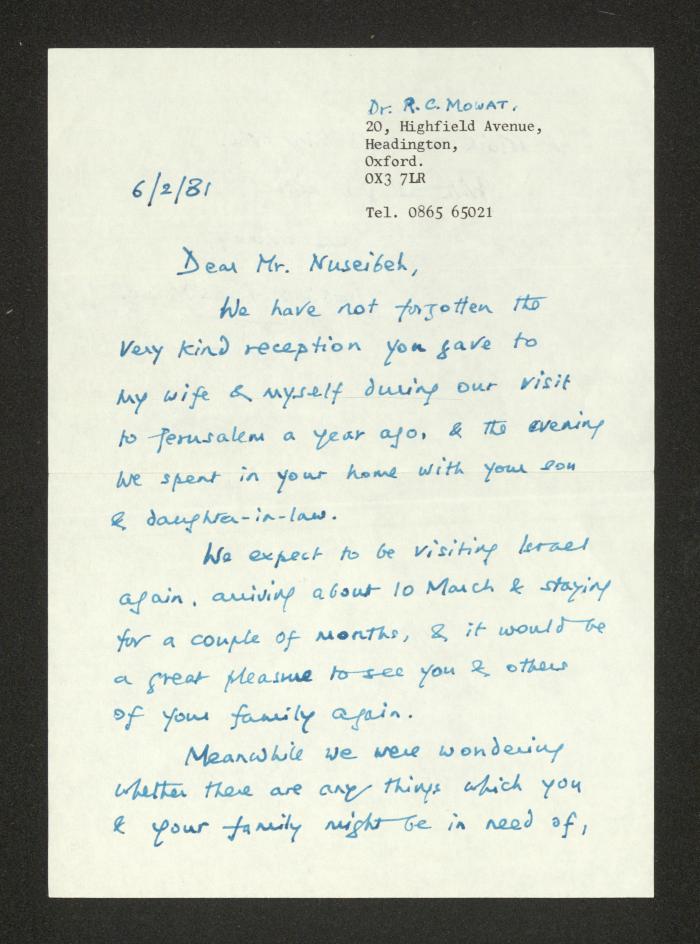 Dr. R. C. MOWAT.
20, Highfield Avenue,
Headington,
Oxford.
OX3 7LR
Tel. 0865 65021
6/2/81
Dear Mr. Nuseibeh,
We have not forgotten the
very kind reception you gave to
my wife & myself during our visit
to Jerusalem a year ago, & the evening
we spent in your home with your son
& daughter-in-law.
We expect to be visiting Israel
again, arriving about 10 March & staying
for a couple of months, & it would be
a great pleasure to see you & others
of your family again.
Meanwhile we were wondering
whether there are any things which you
& your family might be in need of,